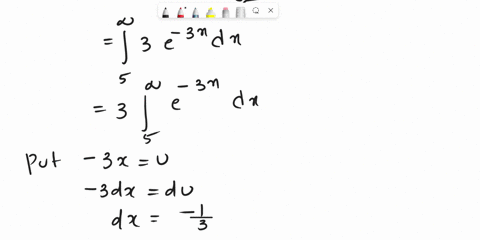 = ∫₅^∞ 3 e^{-3x} dx
= 3 ∫₅^∞ e^{-3x} dx
Put -3x = u
-3dx = du
dx = -1/3